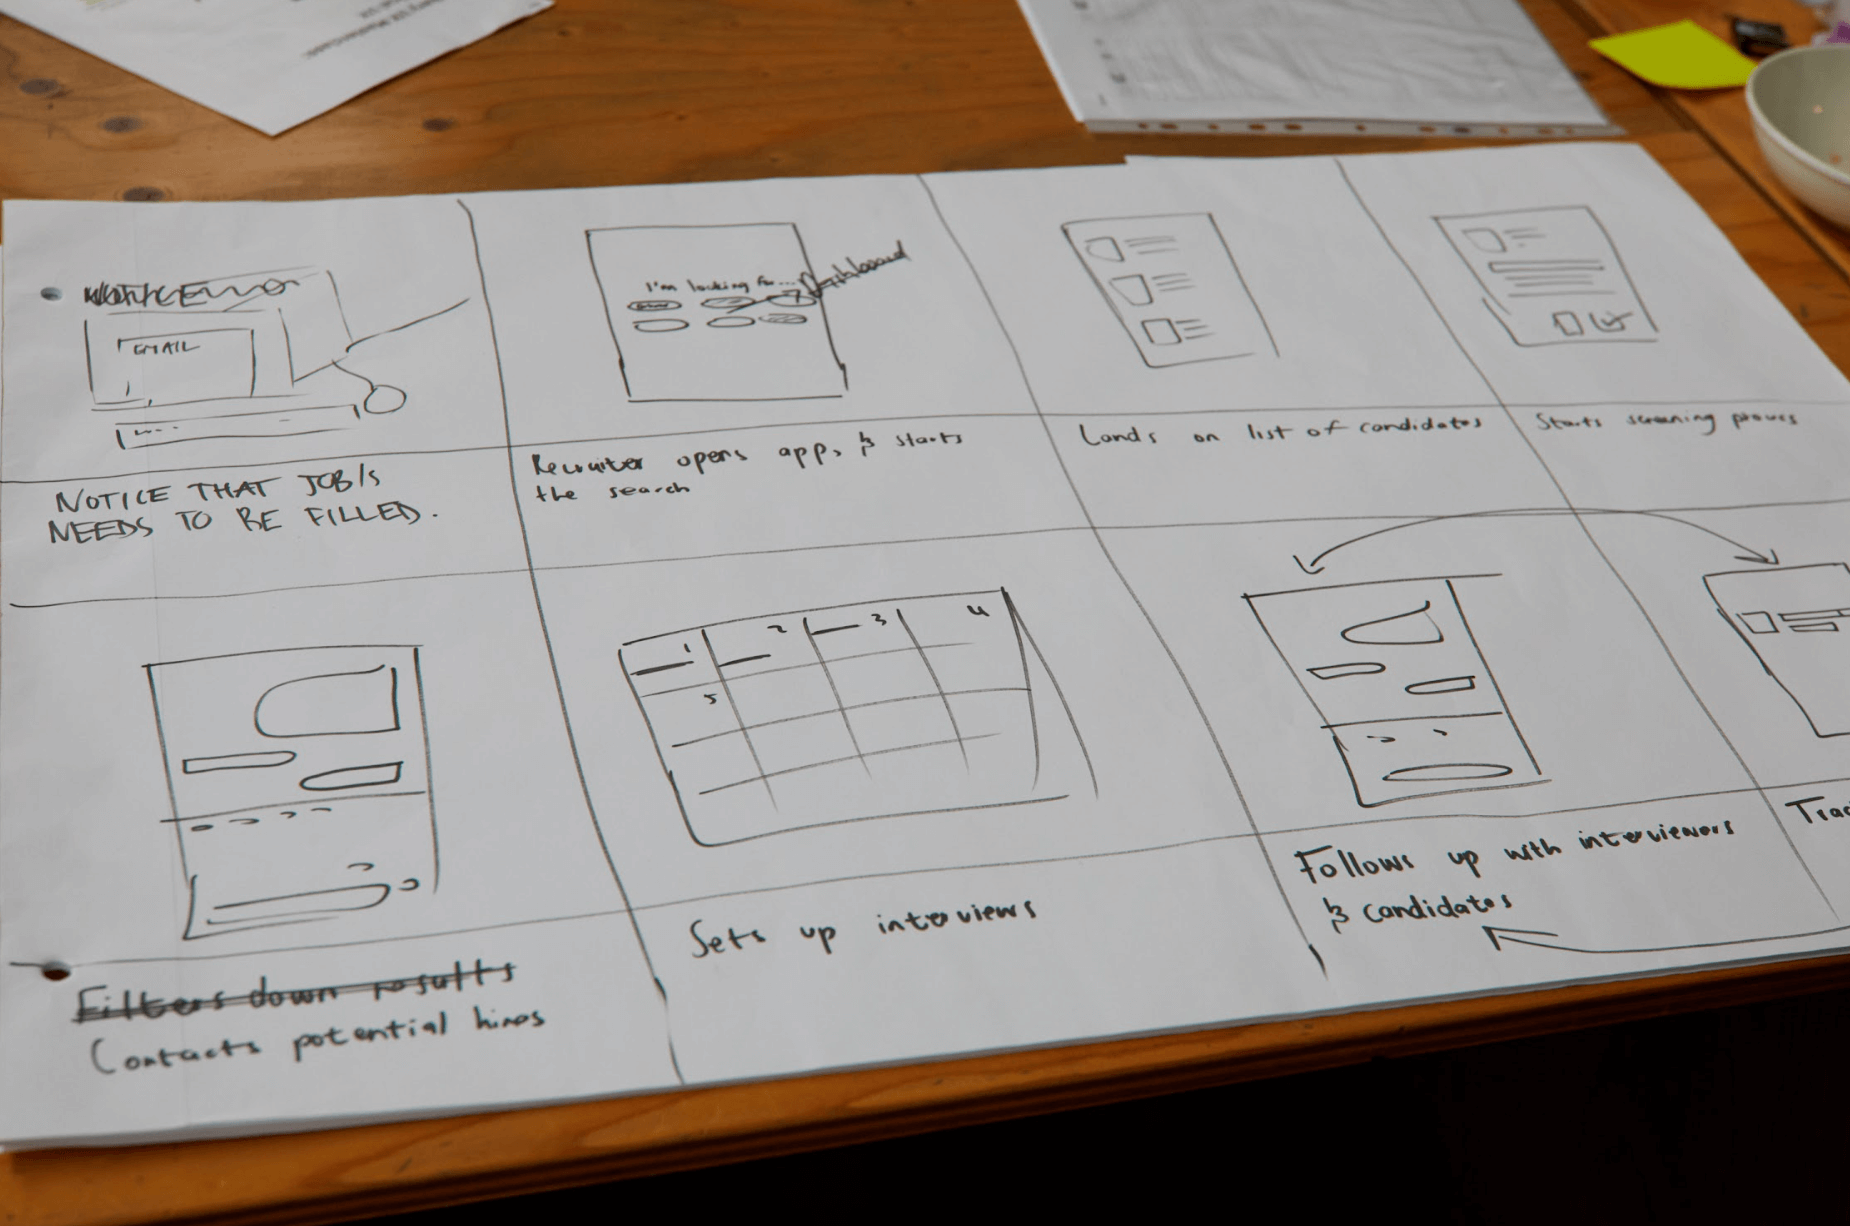 EMAIL
I'm looking for...
Dashboard
NOTICE THAT JOB/S
NEEDS TO BE FILLED.
Recruiter opens app, & starts
the search
Lands on list of candidates
Starts screening process
1
2
3
4
5
Filters down results
Contacts potential hires
Sets up interviews
Follows up with interviewers
& candidates
Trac